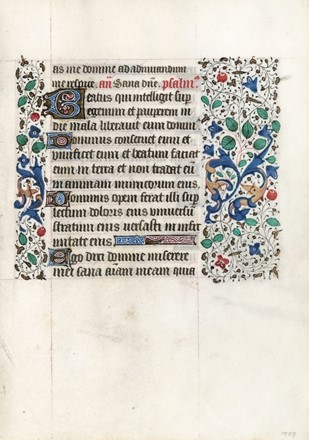 as me domine ad adiuuandum
me respice. añ Sana dñe. psalmꝰ
Beatus qui intelligit sup
egenum et pauperem in
die mala liberauit eum domin
Dominus conseruet eum et
uiuificet eum et beatum faciat
eum in terra et non tradat eū
in animam inimicorum eius.
Dominus opem ferat illi sup
lectum doloris eius uniuersu
stratum eius uersasti in infir
mitate eius
Ego dixi domine miserere
mei sana aīam meam quia